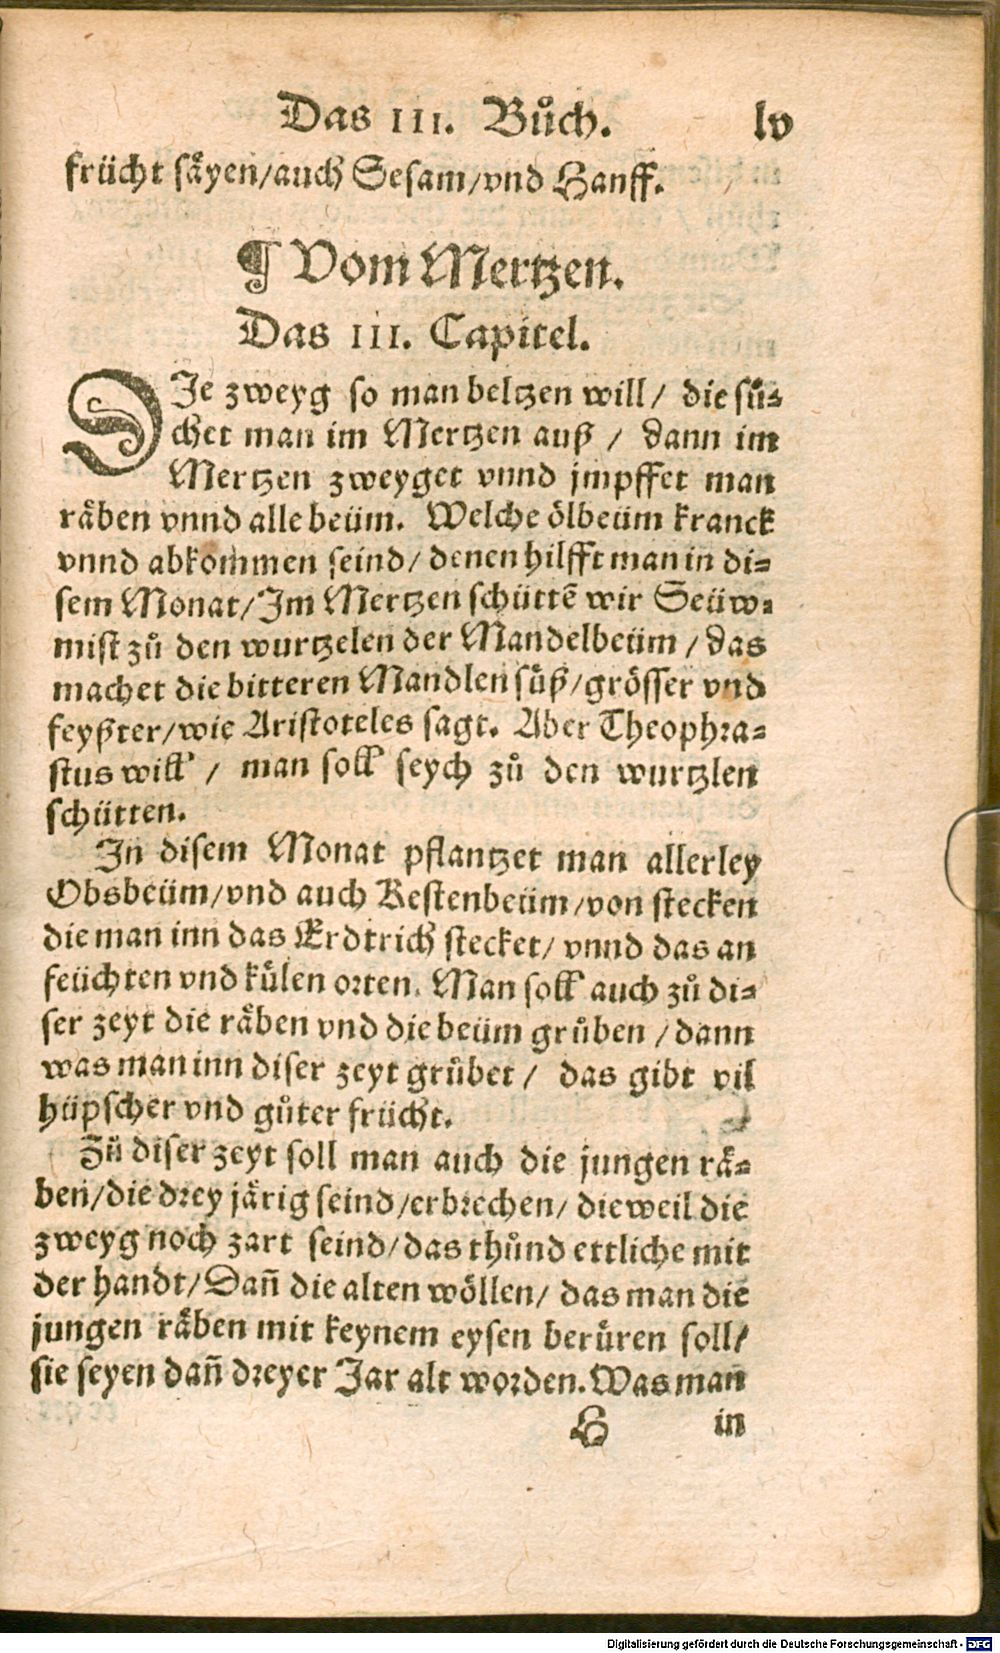 Das III. Bůch. lv
frücht sǎyen/auch Sesam/vnd Hanff.
¶ Vom Mertzen.
Das III. Capitel.
DIe zweyg so man beltzen will/ die sů⸗
chet man im Mertzen auß / dann im
Mertzen zweyget vnnd jmpffet man
råben vnnd alle beüm. Welche ölbeüm kranck
vnnd abkommen seind/ denen hilfft man in di⸗
sem Monat/Im Mertzen schüttē wir Seüw⸗
mist zů den wurtzelen der Mandelbeüm / das
machet die bitteren Mandlen süß/grösser vnd
feyßter/wie Aristoteles sagt. Aber Theophra⸗
stus will / man soll seych zů den wurtzlen
schütten.
In disem Monat pflantzet man allerley
Obsbeüm/vnd auch Kestenbeüm/von stecken
die man inn das Erdtrich stecket/ vnnd das an
feüchten vnd külen orten. Man soll auch zů di⸗
ser zeyt die råben vnd die beüm grůben / dann
was man inn diser zeyt grůbet / das gibt vil
hüpscher vnd gůter frücht.
Zů diser zeyt soll man auch die jungen rå⸗
ben/die drey järig seind/erbrechen/ dieweil die
zweyg noch zart seind/das thůnd ettliche mit
der handt/Dañ die alten wöllen/ das man die
jungen råben mit keynem eysen berůren soll/
sie seyen dañ dreyer Jar alt worden. Was man
H in
Digitalisierung gefördert durch die Deutsche Forschungsgemeinschaft - DFG